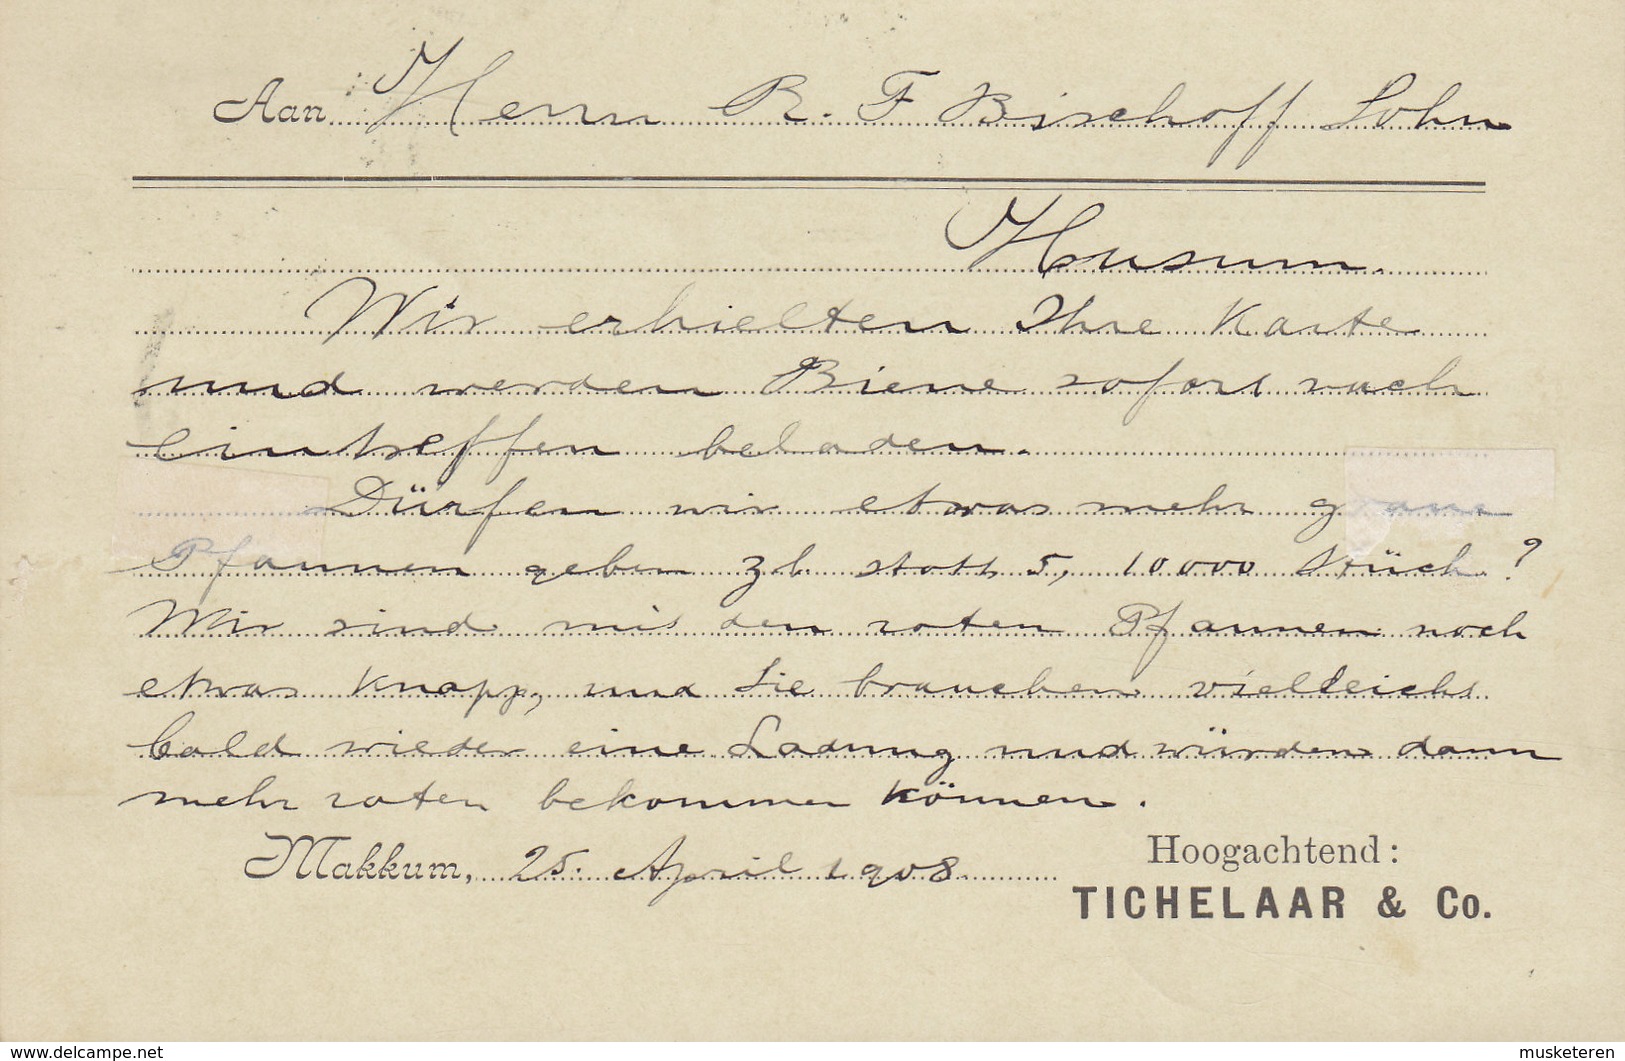 Aan Herrn R. F Bischoff Sohn
Husum.
Wir erhielten Ihre Karte
und werden Biene sofort nach
eintreffen beladen.
Dürfen wir etwas mehr graue
Pfannen geben zb. statt 5, 10000 Stück?
Wir sind mit den roten Pfannen noch
etwas knapp, und Sie brauchen vielleicht
bald wieder eine Ladung und würden dann
mehr roten bekommen können.
Makkum, 25. April 1908
Hoogachtend:
TICHELAAR & Co.
www.delcampe.net
musketeren